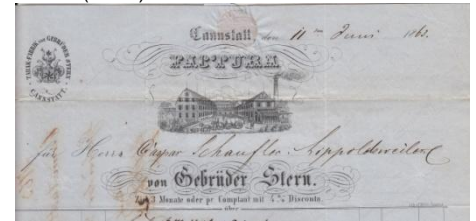 Cannstatt den 11ten Juni 1863.
FACTURA
CANNSTATT.
für Herrn Caspar Schaufler Lippoldsweiler
von Gebrüder Stern.
3 Monate oder pr Comptant mit 4% Disconto.
über